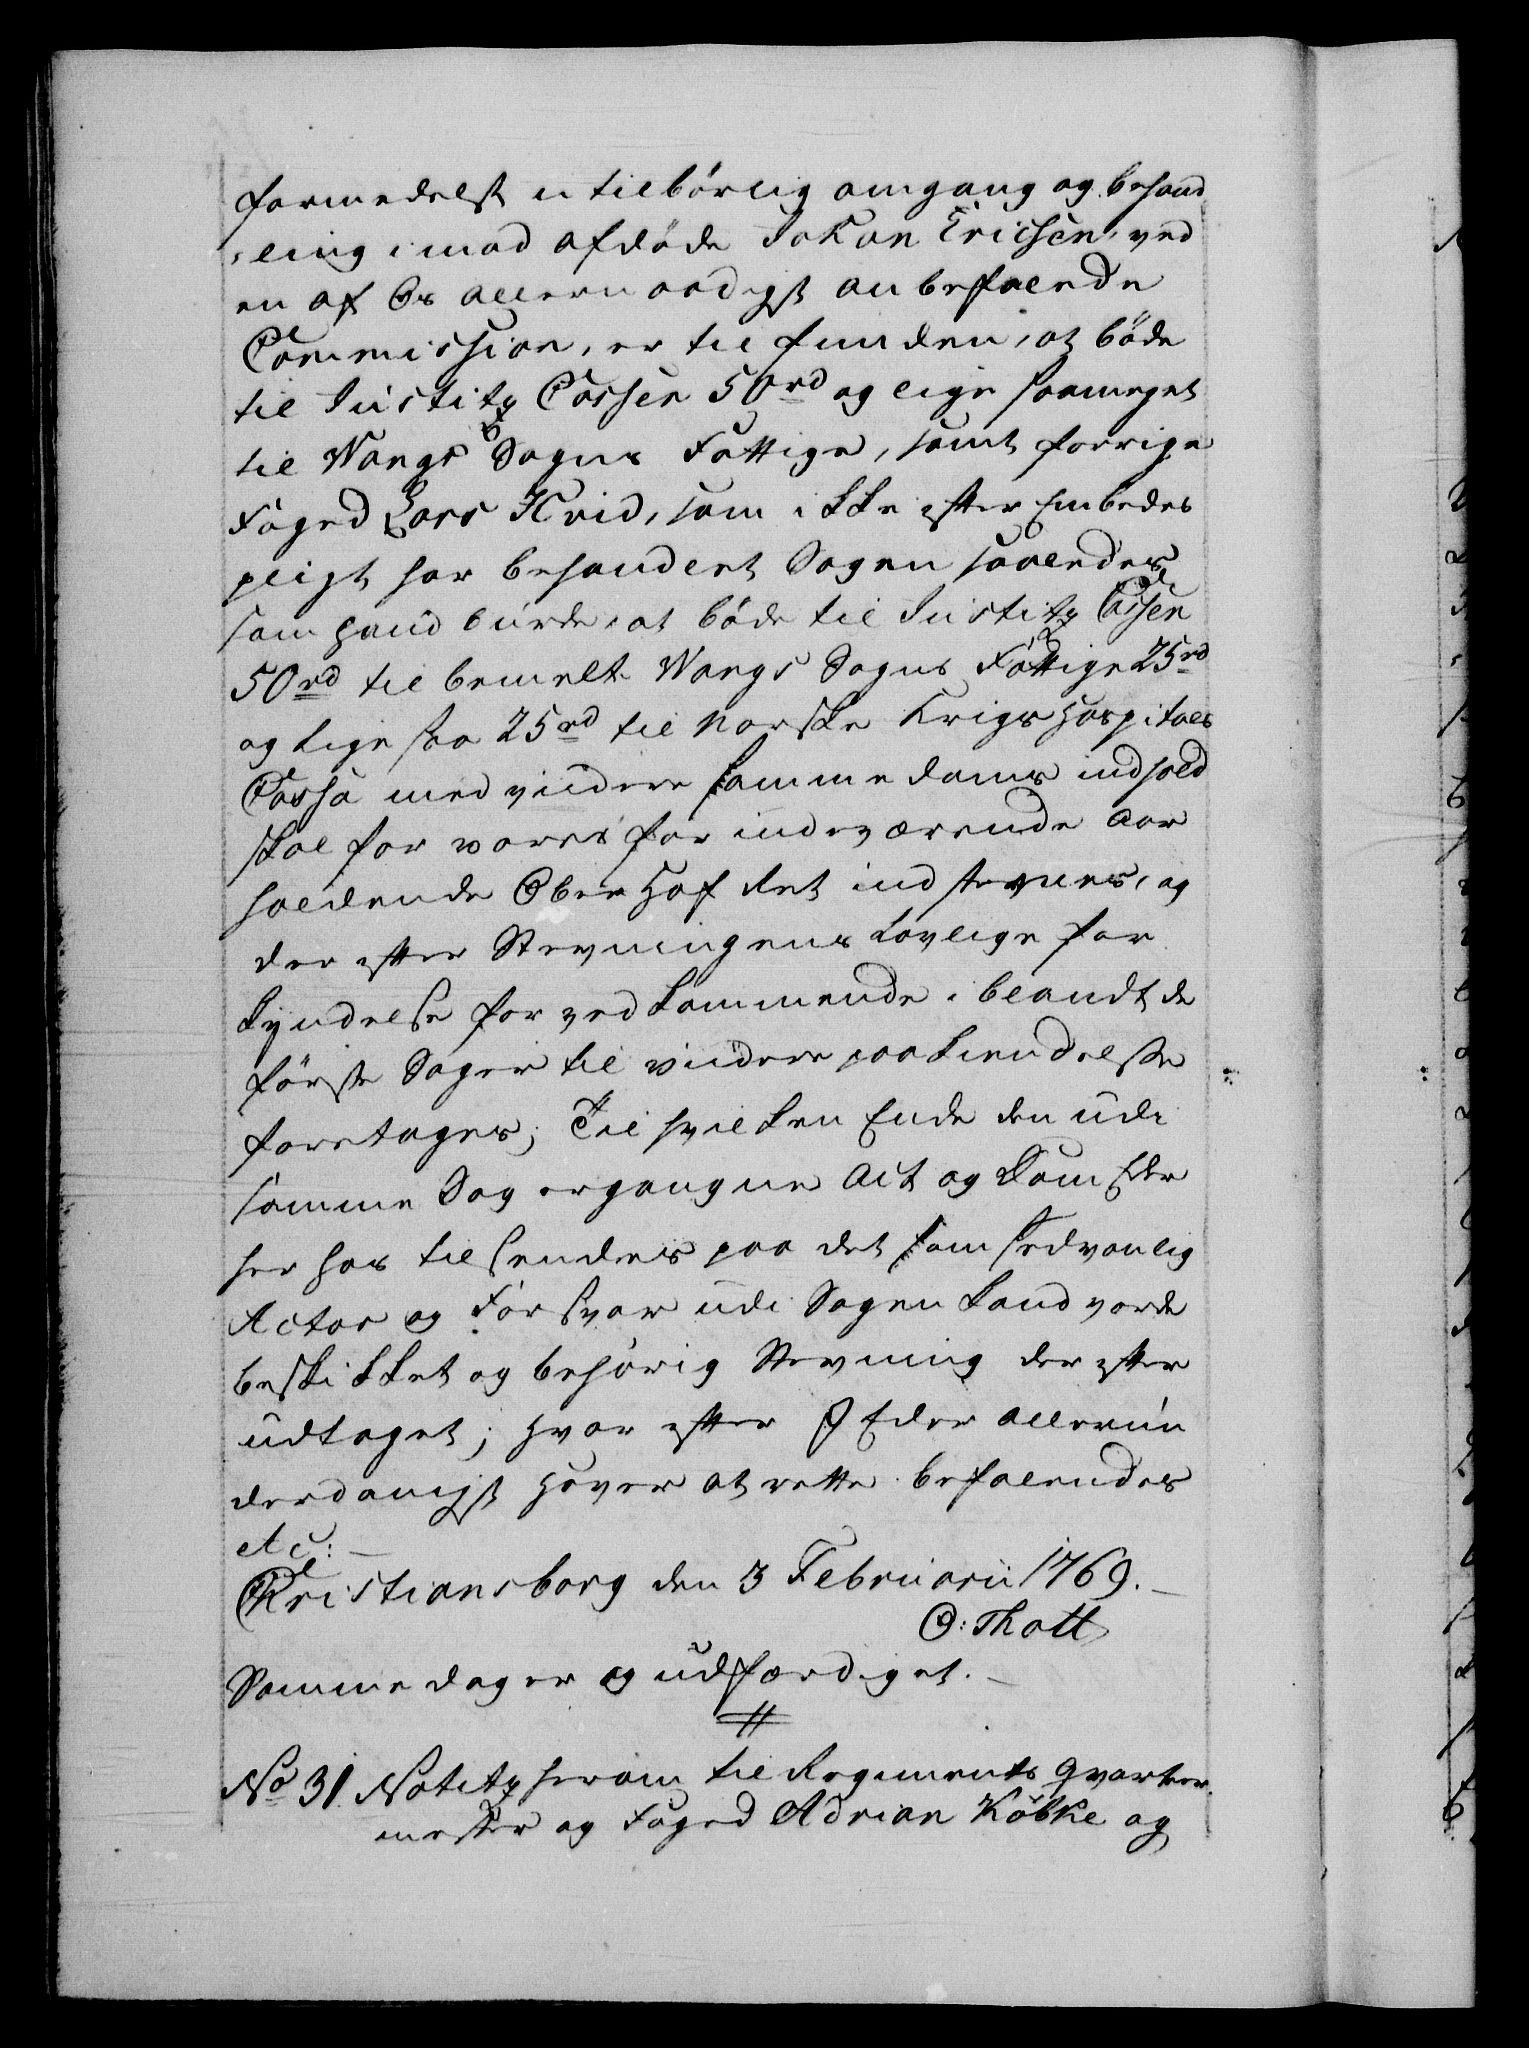 formedelst utilbörlig omgang og behand
ling imod afdöde Johan Ericsen, ved
en af Os allernaadigst anbefalede
Commission, er tilfunden, at böde
til Justitz Cassen 50 rd og lige saameget
til Wangs Sogns Fattige, samt forrige
Foged Lars Hvid, som ikke efter Embeds
pligt har behandlet Sagen saaledes
som hand burde, at böde til Justitz Cassen
50 rd til bemelte Wangs Sogns Fattige 25 rd
og lige saa 25 rd til Norske Krigs Hospitals
Cassa med videre samme doms indhold
skal for vores for indeværende Aar
holdende Ober Hof Ret indstevnes, og
der efter Stevningens lovlige for
kyndelse for vedkommende, iblandt de
förste Sager til videre paakiendelse
foretages; Til hvilken Ende den udi
samme Sag ergangne Act og Dom Eder
her hos tilsendes paa det som sedvanlig
Actor og Forsvar udi Sagen kand vorde
beskikket og behörig Stevning der efter
udtaget; hvor efter I Eder allerun
derdanigst haver at rette. befalendes
Ac:
Christiansborg den 3 Februarii 1769.
O: Thott
Samme dag er og udfærdiget.
No 31 Notitz herom til Regiments Qvarteer
mester og Foged Adrian Köbke og